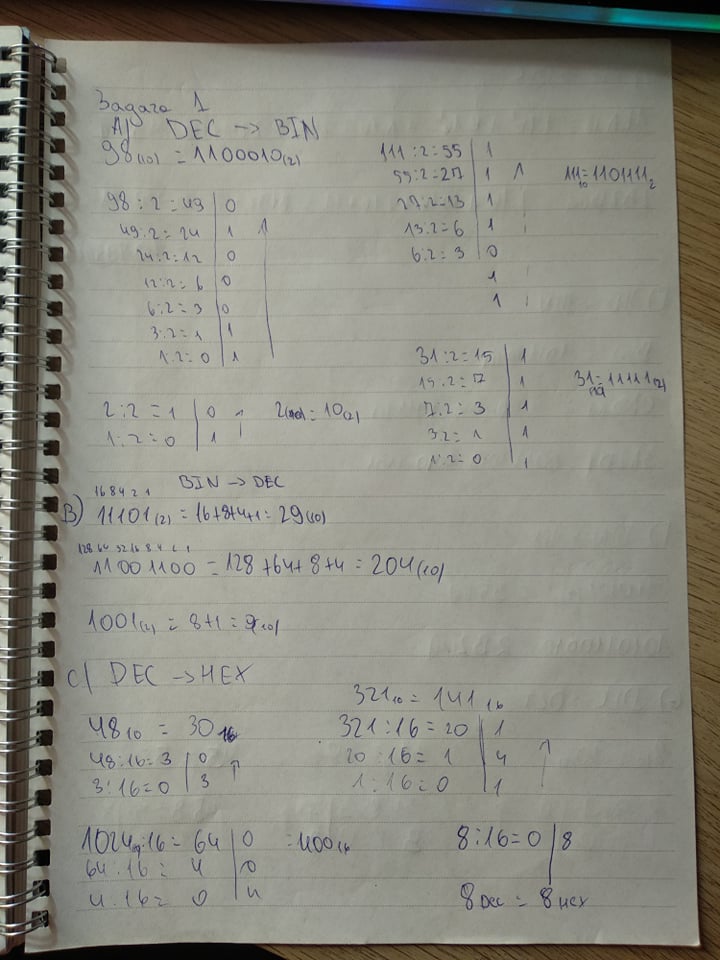 Задача 1
A) DEC -> BIN
98(10) = 1100010(2)
98 : 2 = 49 | 0
49 : 2 = 24 | 1
24 : 2 = 12 | 0
12 : 2 = 6 | 0
6 : 2 = 3 | 0
3 : 2 = 1 | 1
1 : 2 = 0 | 1
111 : 2 = 55 | 1
55 : 2 = 27 | 1
27 : 2 = 13 | 1
13 : 2 = 6 | 1
6 : 2 = 3 | 0
1
1
111₁₀ = 1101111₂
2 : 2 = 1 | 0
1 : 2 = 0 | 1
2(10) = 10(2)
31 : 2 = 15 | 1
15 : 2 = 7 | 1
7 : 2 = 3 | 1
3 2 = 1 | 1
1 : 2 = 0 | 1
31(10) = 11111(2)
BIN -> DEC
16 8 4 2 1
B) 11101(2) = 16+8+4+1 = 29(10)
128 64 32 16 8 4 2 1
11001100 = 128 + 64 + 8 + 4 = 204(10)
1001(2) = 8+1 = 9(10)
C) DEC -> HEX
48₁₀ = 30₁₆
48 : 16 = 3 | 0
3 : 16 = 0 | 3
321₁₀ = 141₁₆
321 : 16 = 20 | 1
20 : 16 = 1 | 4
1 : 16 = 0 | 1
1024 : 16 = 64 | 0 = 400₁₆
64 : 16 = 4 | 0
4 : 16 = 0 | 4
8 : 16 = 0 | 8
8 DEC = 8 HEX